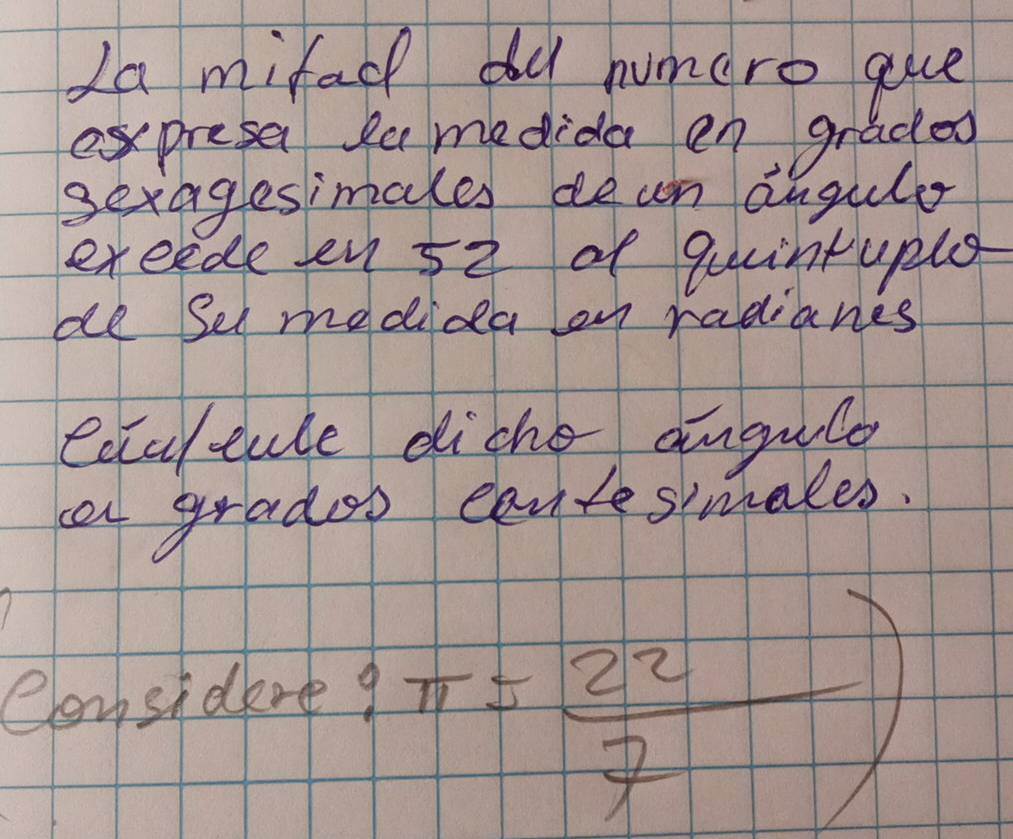 La mitad del numero que
expresa la medida en grados
sexagesimales de un ángulo
excede en 52 al quintuplo
de su medida en radianes
Cálcule dicho ángulo
en grados centesimales.
Considere: π = 22/7)